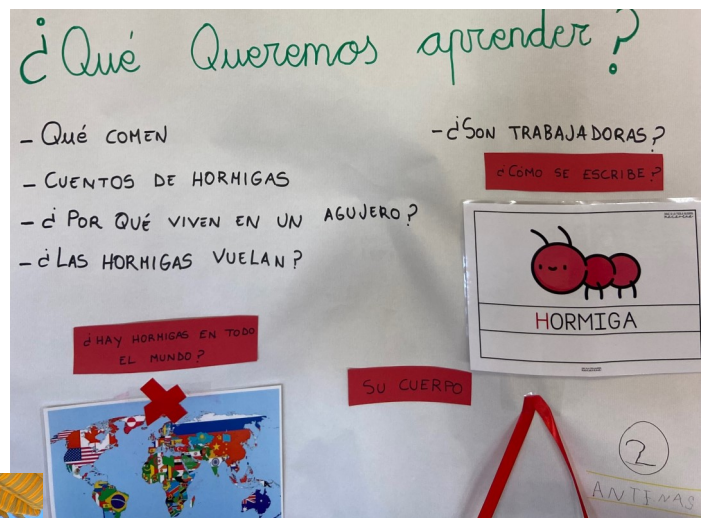 ¿Qué Queremos aprender?
- Qué COMEN
- CUENTOS DE HORMIGAS
- ¿POR QUÉ VIVEN EN UN AGUJERO?
- ¿LAS HORMIGAS VUELAN?
- ¿SON TRABAJADORAS?
¿CÓMO SE ESCRIBE?
HORMIGA
¿HAY HORMIGAS EN TODO
EL MUNDO?
SU CUERPO
2
ANTENAS